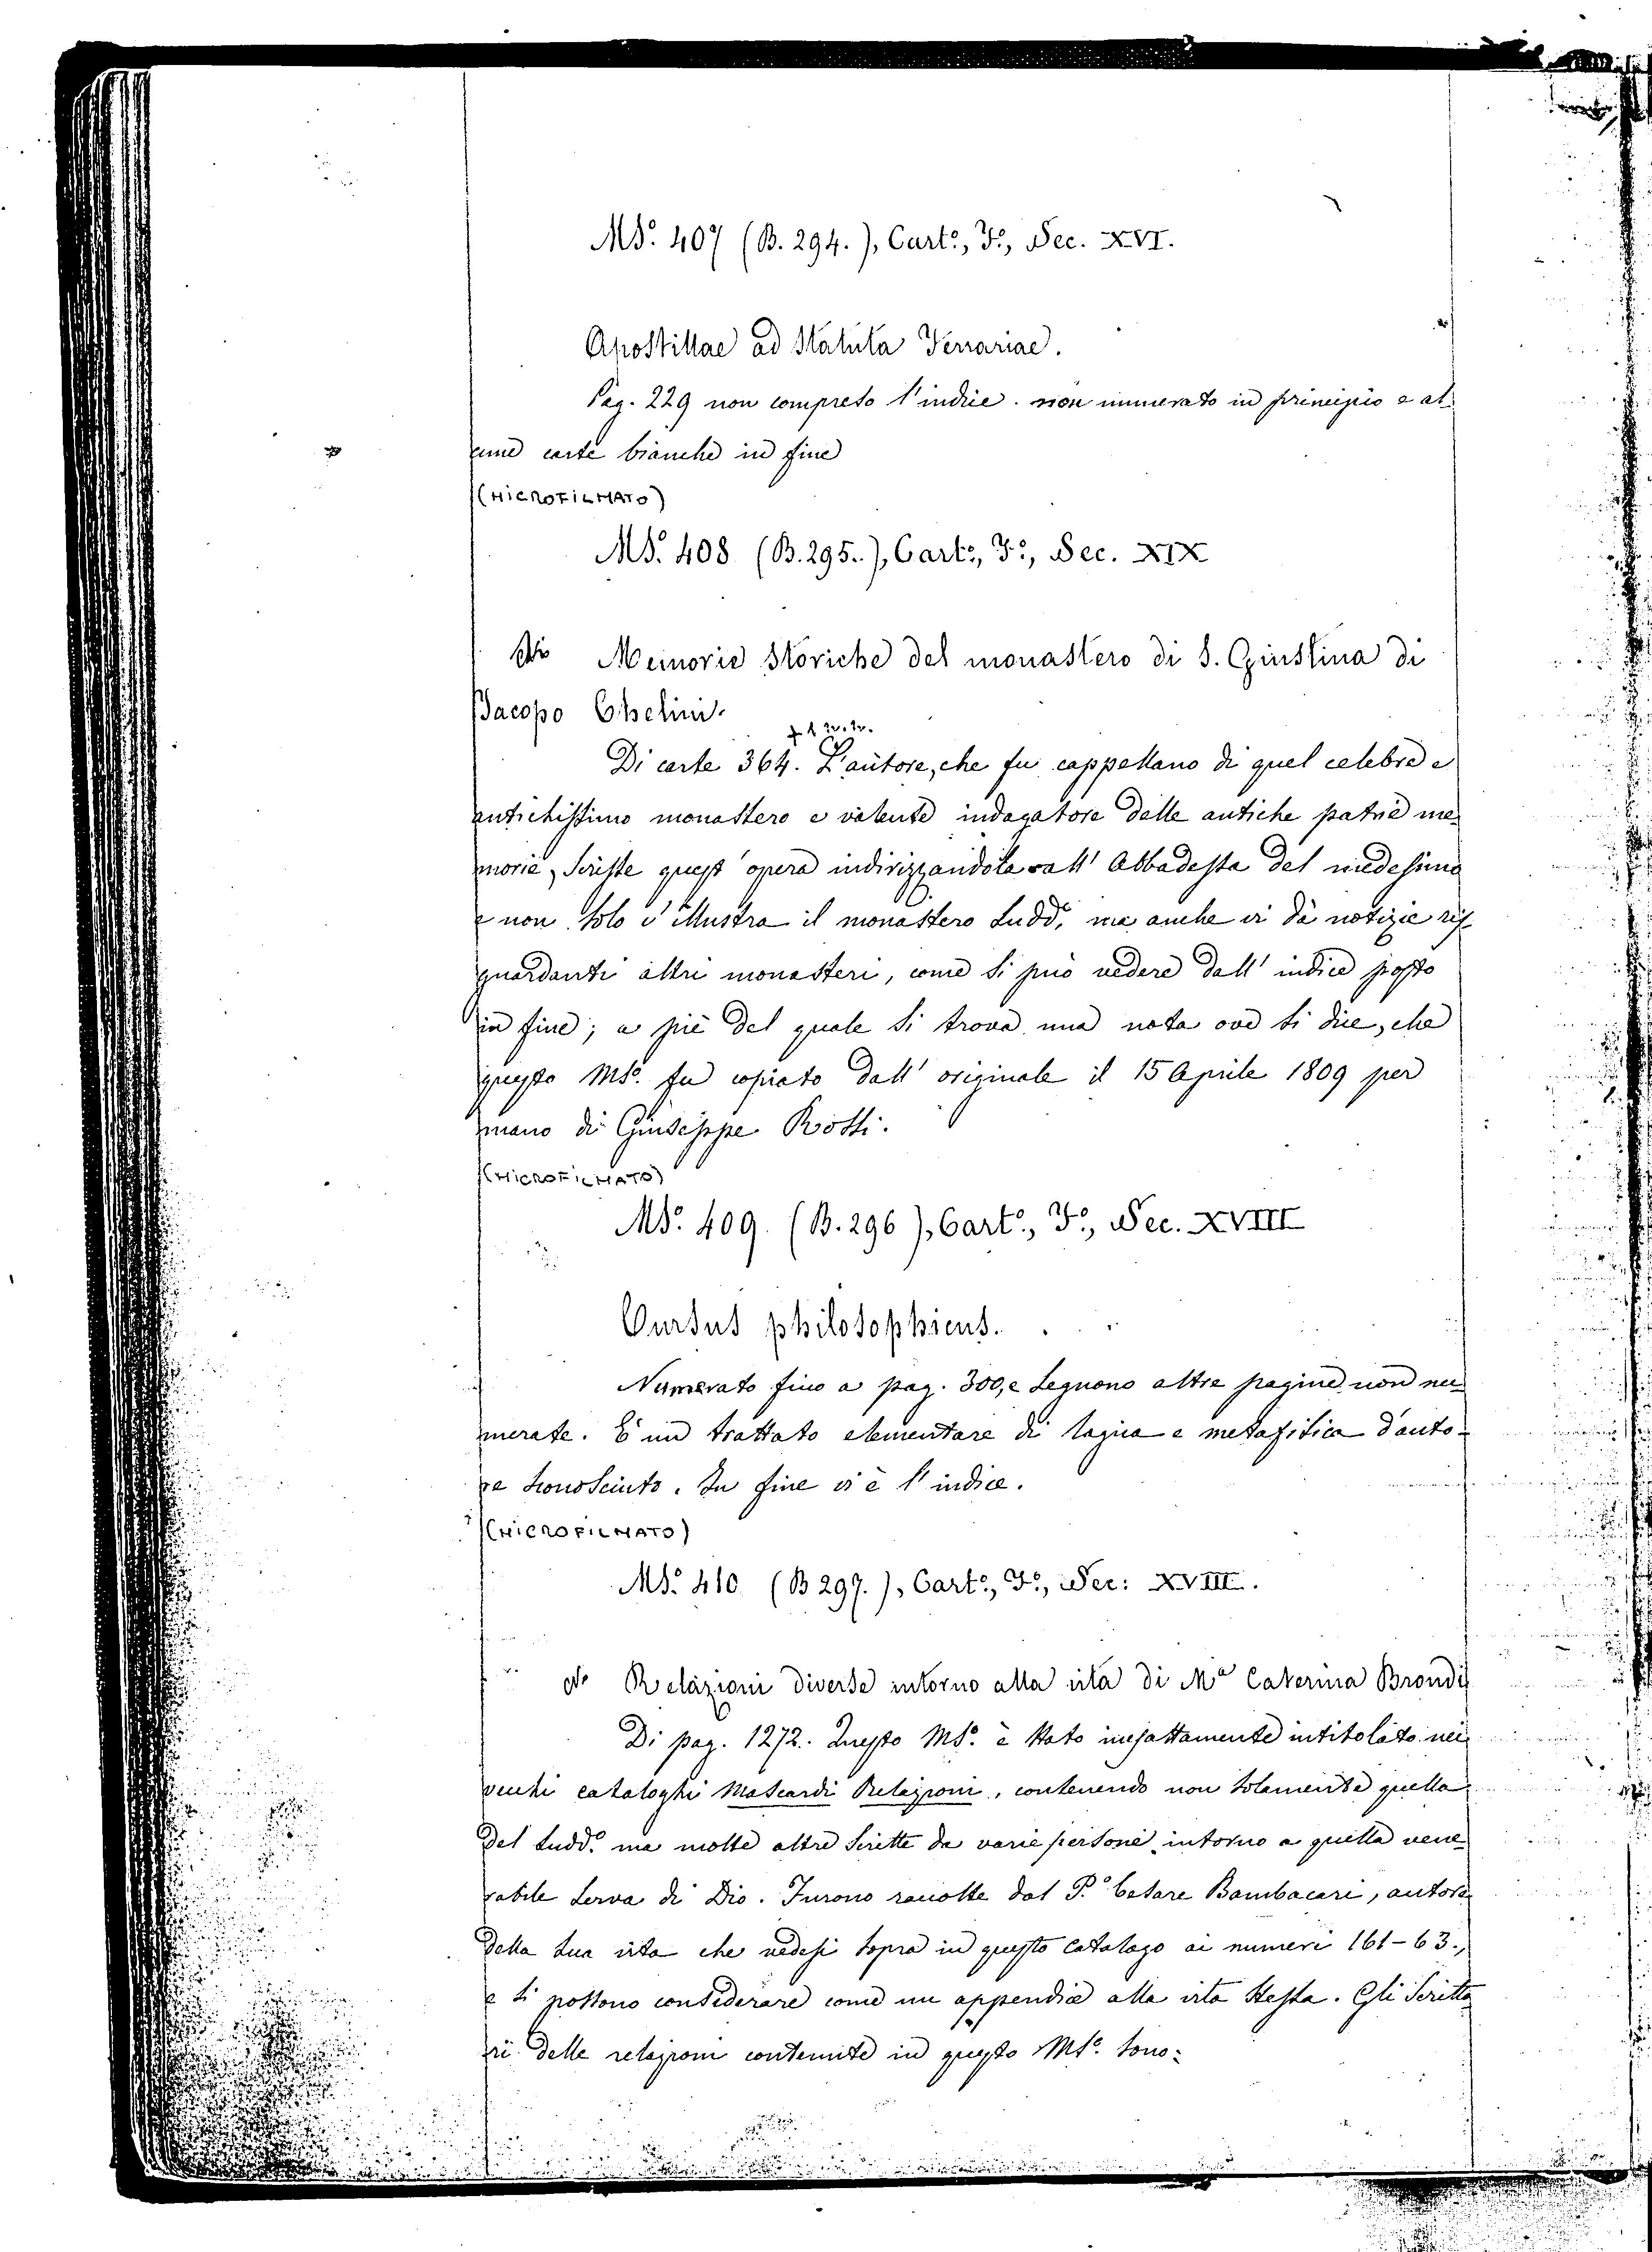 Ms. 407 (B. 294.), Cart.º, F.º, Sec. XVI.
Apostillae ad Statuta Ferrariae.
Pag. 229 non compreso l'indice non numerato in principio e al
cune carte bianche in fine
(MICROFILMATO)
Ms. 408 (B. 295.), Cart.º, F.º, Sec. XIX
Memorie Storiche del monastero di S. Giustina di
Jacopo Chelini.
Di carte 364. L'autore, che fu cappellano di quel celebre e
antichissimo monastero e valente indagatore delle antiche patrie me
morie, scrisse quest'opera indirizzandola all'Abbadessa del medesimo
e non solo c'illustra il monastero sudd.º, ma anche ci dà notizie ris
guardanti altri monasteri, come si può vedere dall'indice posto
in fine; a piè del quale si trova una nota ove si dice, che
questo Ms. fu copiato dall'originale il 15 Aprile 1809 per
mano di Giuseppe Rossi.
(MICROFILMATO)
Ms. 409. (B. 296), Cart.º, F.º, Sec. XVIII
Cursus philosophicus.
Numerato fino a pag. 300, e seguono altre pagine non nu
merate. È un trattato elementare di logica e metafisica d'auto-
re sconosciuto. In fine vi è l'indice.
(MICROFILMATO)
Ms. 410 (B 297.), Cart.º, F.º, Sec: XVIII.
Relazioni diverse intorno alla vita di Mª Caterina Brondi
Di pag. 1272. Questo Ms. è stato inesattamente intitolato nei
vecchi cataloghi Mascardi Relazioni, contenendo non solamente quella
del sudd.º ma molte altre scritte da varie persone intorno a quella vene
rabile serva di Dio. Furono raccolte dal P. Cesare Bambacari, autore
della sua vita che vedesi sopra in questo Catalogo ai numeri 161-63.,
e si possono considerare come un appendice alla vita stessa. Gli scritto
ri delle relazioni contenute in questo Ms. sono: